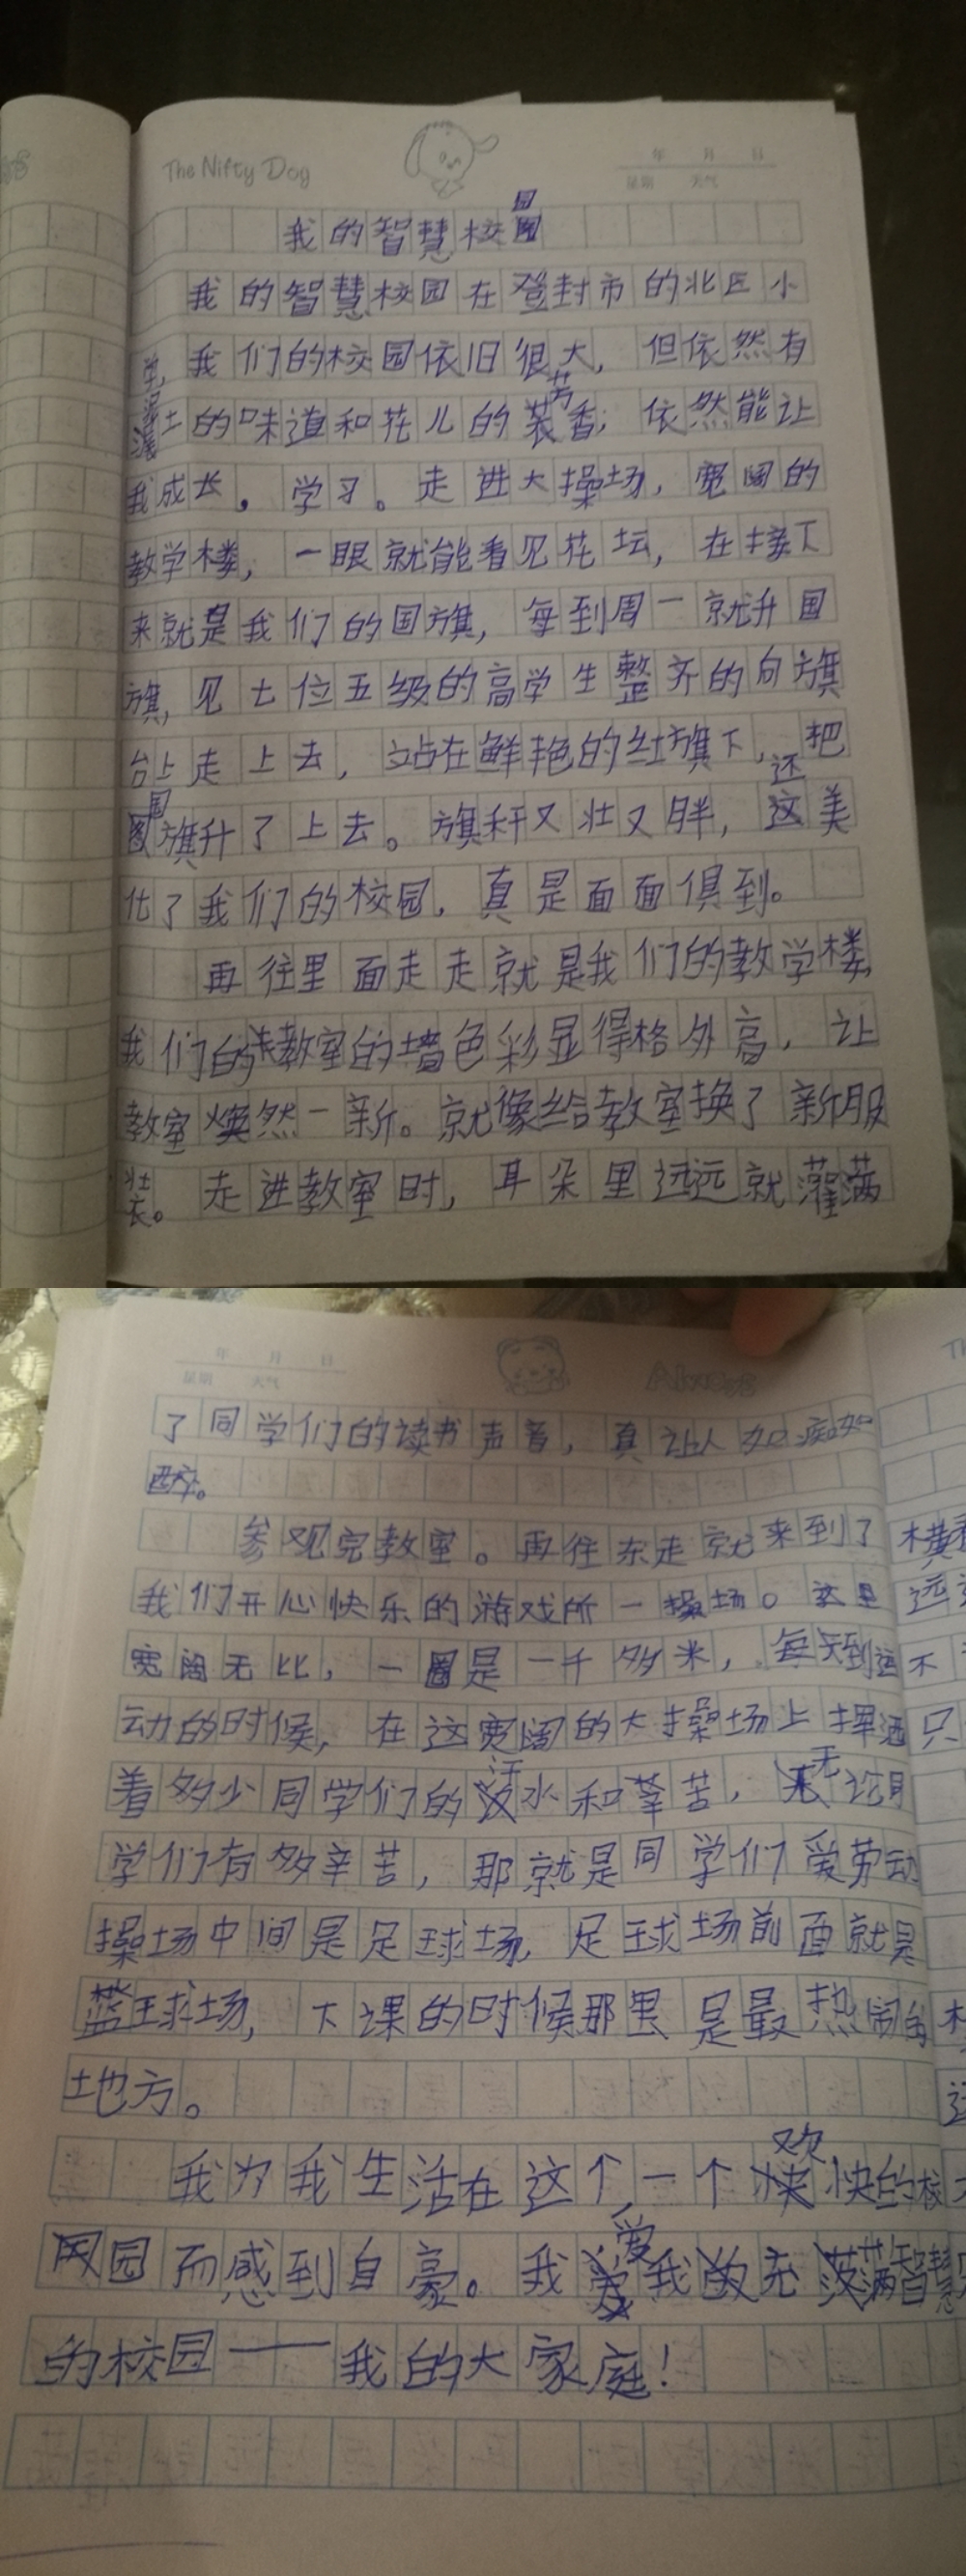 The Nifty Dog
年 月 日
星期 天气
我的智慧校园
我的智慧校园在登封市的北区小
学,我们的校园依旧很大,但依然有
泥土的味道和花儿的芳香;依然能让
我成长。学习。走进大操场,宽阔的
教学楼,一眼就能看见花坛,在接下
来就是我们的国旗,每到周一就升国
旗,见七位五级的高学生整齐的向旗
台上走上去,站在鲜艳的红旗下,还把
国旗升了上去。旗秆又壮又胖,这美
化了我们的校园,真是面面俱到。
再往里面走走就是我们的教学楼,
我们的教室的墙色彩显得格外高,让
教室焕然一新。就像给教室换了新服
装。走进教室时,耳朵里远远就灌满
年 月 日
星期 天气
Always
了同学们的读书声音,真让人如痴如
醉。
参观完教室。再往东走就来到了
我们开心快乐的游戏所一操场。这里
宽阔无比,一圈是一千多米,每天到运
动的时候,在这宽阔的大操场上挥洒
着多少同学们的汗水和辛苦,无论同
学们有多辛苦,那就是同学们爱劳动
操场中间是足球场,足球场前面就是
篮球场,下课的时候那里是最热闹的
地方。
我为我生活在这个,一个欢快的校
园而感到自豪。我爱我的充满智慧
的校园——我的大家庭!